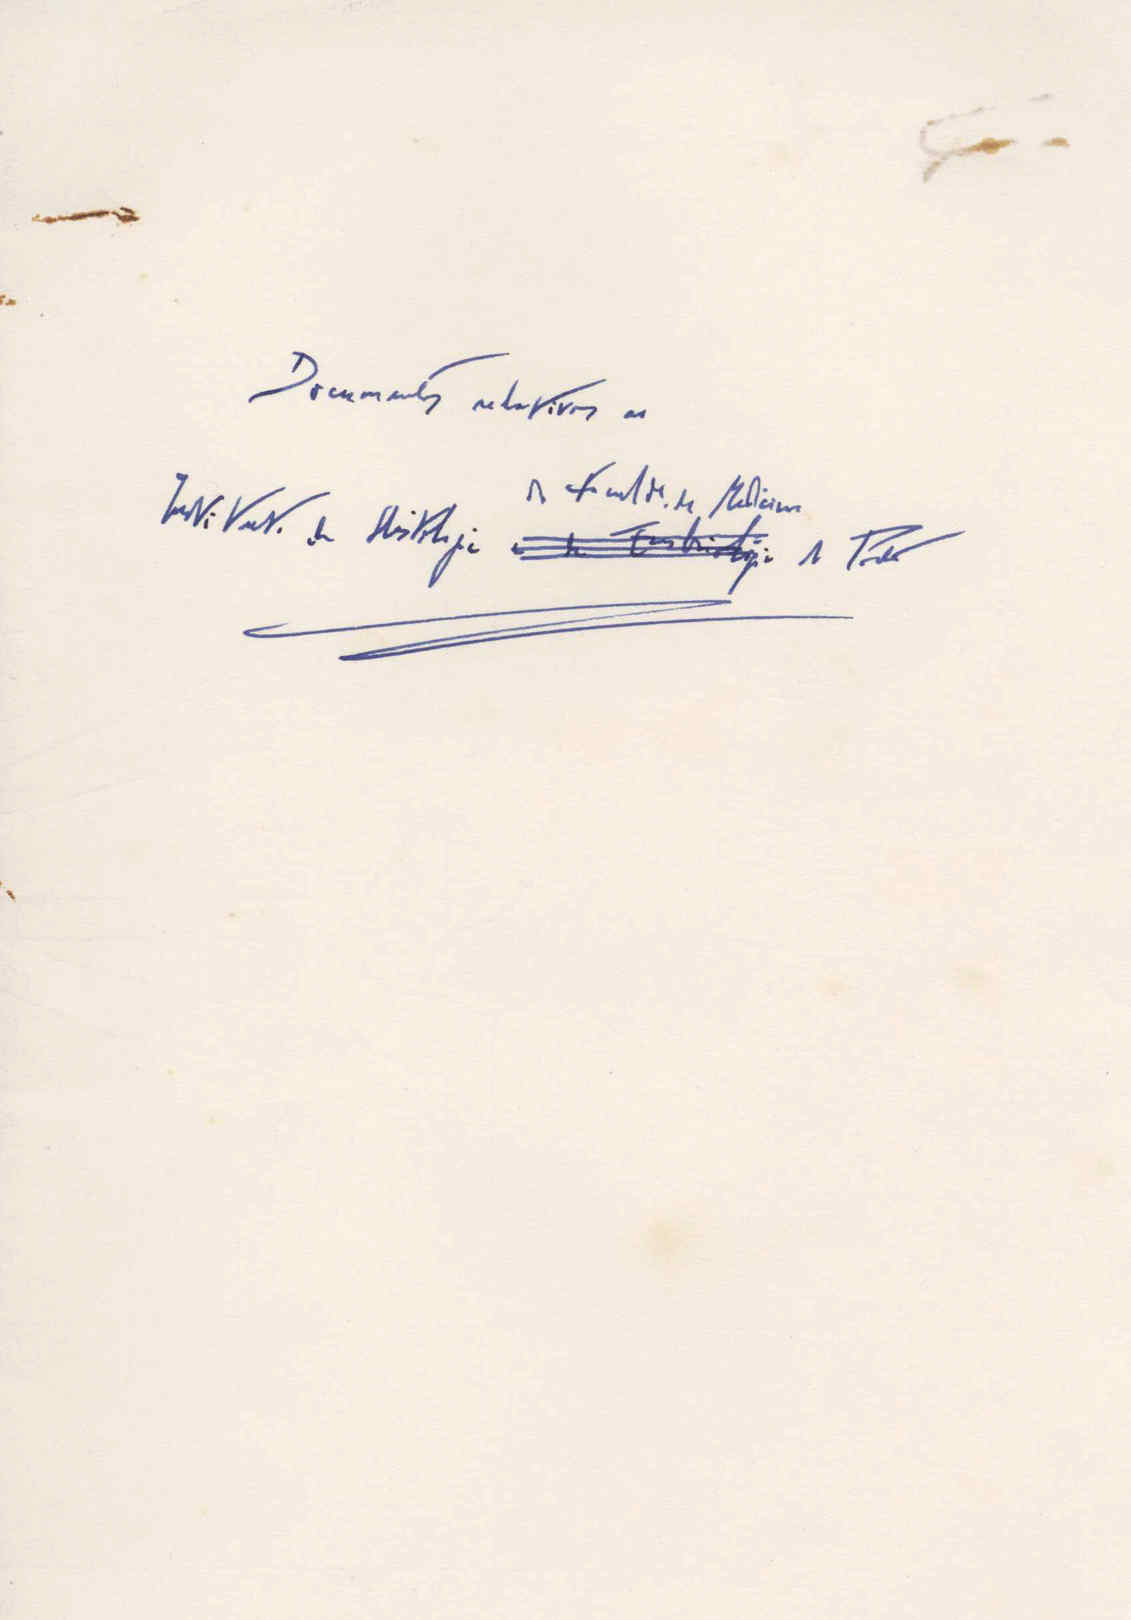 Documentos relativos ao
da Faculde. de Medicina
Instituto de Histologia e de Embriologia do Porto